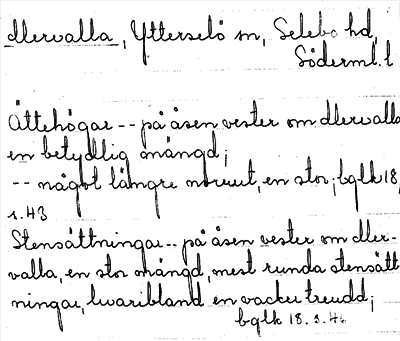 Mervalla, Ytterselö sn, Selebo hd,
Söderml. l
Ättehögar -- på åsen vester om Mervalla
en betydlig mängd;
-- något längre norrut, en stor; bglk 18,
s. 43
Stensättningar -- på åsen vester om Mer-
valla, en stor mängd, mest runda stensätt
ningar, hvaribland en vacker treudd;
bglk 18. s. 46